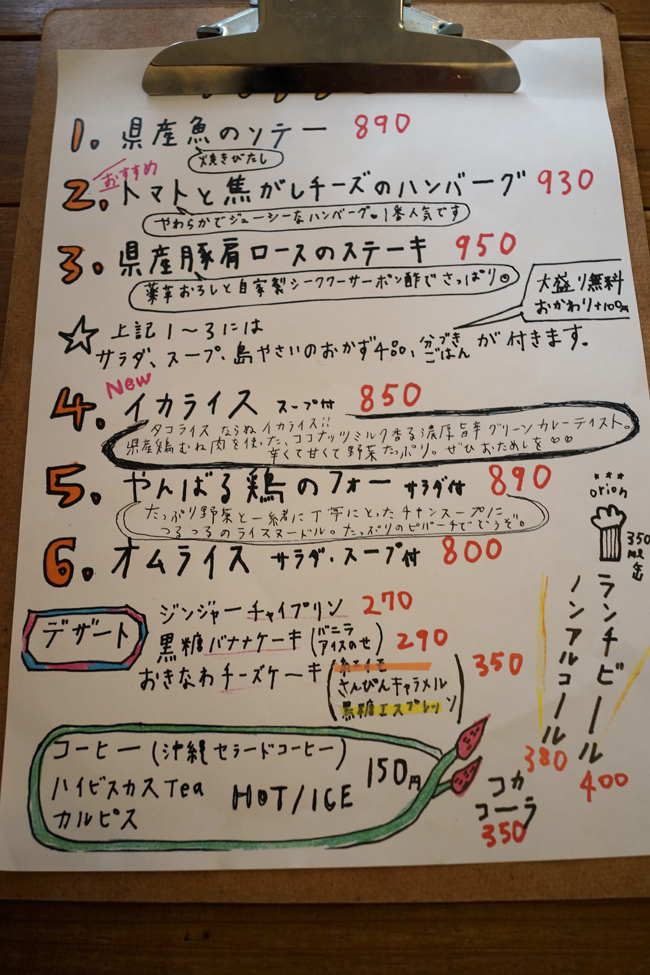 1. 県産魚のソテー 890
焼きびたし
おすすめ
2. トマトと焦がしチーズのハンバーグ 930
やわらかでジューシーなハンバーグ。1番人気です
3. 県産豚肩ロースのステーキ 950
薬草おろしと自家製シークワーサーポン酢でさっぱり
大盛り無料
おかわり+100円
☆ 上記1〜3には
サラダ、スープ、島やさいのおかず4品、分づきごはん が付きます。
New
4. イカライス スープ付 850
タコライスならぬイカライス!!
県産鶏むね肉を使った、ココナッツミルク香る濃厚旨辛グリーンカレーテイスト。
辛くて甘くて野菜たっぷり。ぜひおためしを
5. やんばる鶏のフォー サラダ付 890
たっぷり野菜と一緒に丁寧にとったチキンスープに
つるつるのライスヌードル。たっぷりのピパーチでどうぞ。
6. オムライス サラダ・スープ付 800
orion
350ml缶
ランチビール 400
ノンアルコール 380
デザート
ジンジャーチャイプリン 270
黒糖バナナケーキ (バニラアイスのせ) 290
おきなわチーズケーキ (紅イモ 350
さんぴんキャラメル
黒糖エスプレッソ)
コーヒー (沖縄セラードコーヒー)
ハイビスカスTea
カルピス
HOT/ICE 150円
コカコーラ
350